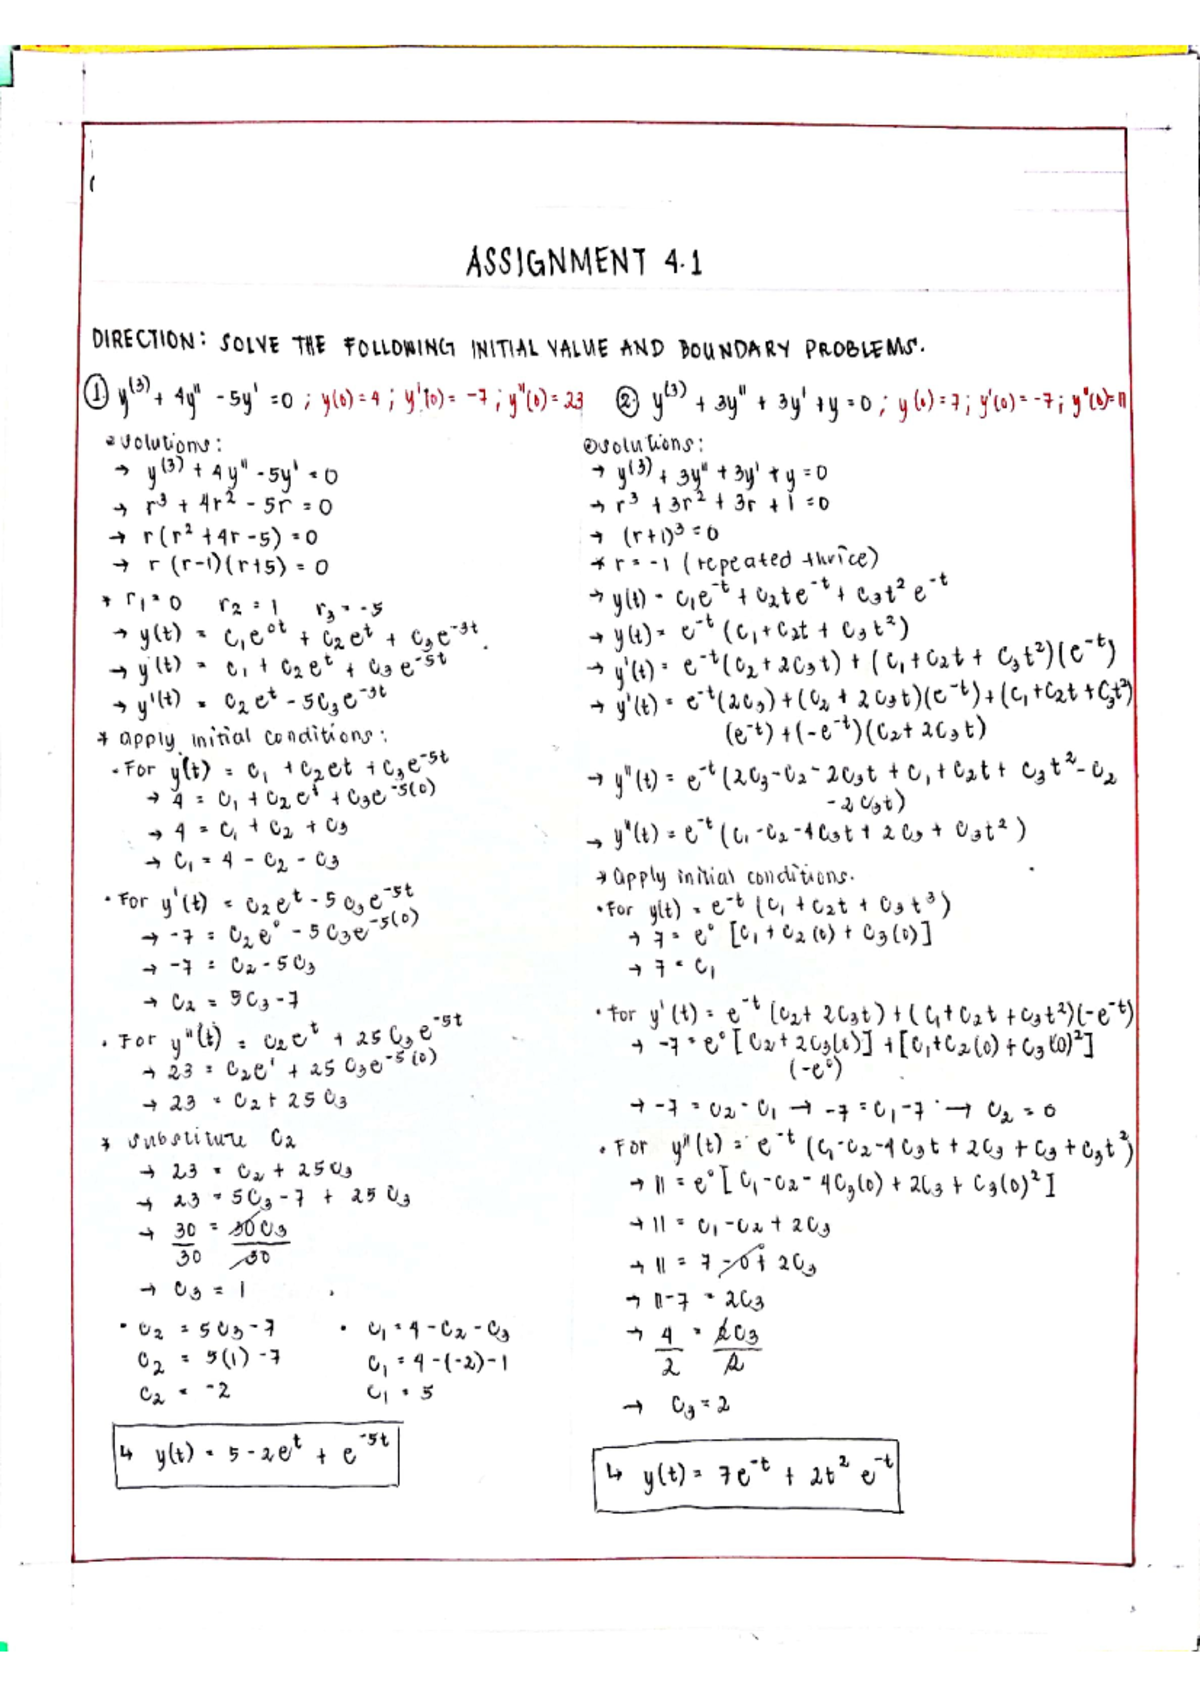 ASSIGNMENT 4.1
DIRECTION: SOLVE THE FOLLOWING INITIAL VALUE AND BOUNDARY PROBLEMS.
① y⁽³⁾ + 4y" - 5y' = 0 ; y(0) = 4 ; y'(0) = -7 ; y"(0) = 23
solutions:
→ y⁽³⁾ + 4y" - 5y' = 0
→ r³ + 4r² - 5r = 0
→ r(r² + 4r - 5) = 0
→ r (r-1)(r+5) = 0
* r₁ = 0 r₂ = 1 r₃ = -5
→ y(t) = C₁e⁰ᵗ + C₂eᵗ + C₃e⁻⁵ᵗ
→ y(t) = C₁ + C₂eᵗ + C₃e⁻⁵ᵗ
→ y'(t) = C₂eᵗ - 5C₃e⁻⁵ᵗ
* apply initial conditions:
• For y(t) = C₁ + C₂et + C₃e⁻⁵ᵗ
→ 4 = C₁ + C₂eᵗ + C₃e⁻⁵⁽⁰⁾
→ 4 = C₁ + C₂ + C₃
→ C₁ = 4 - C₂ - C₃
• For y'(t) = C₂eᵗ - 5C₃e⁻⁵ᵗ
→ -7 = C₂e⁰ - 5C₃e⁻⁵⁽⁰⁾
→ -7 = C₂ - 5C₃
→ C₂ = 5C₃ - 7
• For y"(t) = C₂eᵗ + 25C₃e⁻⁵ᵗ
→ 23 = C₂e' + 25C₃e⁻⁵⁽⁰⁾
→ 23 = C₂ + 25C₃
* substiture C₂
→ 23 = C₂ + 25C₃
→ 23 = 5C₃ - 7 + 25C₃
→ 30 = 30C₃
30 30
→ C₃ = 1
• C₂ = 5C₃ - 7
C₂ = 5(1) - 7
C₂ = -2
• C₁ = 4 - C₂ - C₃
C₁ = 4 - (-2) - 1
C₁ = 5
↳ y(t) = 5 - 2eᵗ + e⁻⁵ᵗ
② y⁽³⁾ + 3y" + 3y' + y = 0 ; y(0) = 7 ; y'(0) = -7 ; y"(0) = 11
solutions:
→ y⁽³⁾ + 3y" + 3y' + y = 0
→ r³ + 3r² + 3r + 1 = 0
→ (r+1)³ = 0
* r = -1 (repeated thrice)
→ y(t) = C₁e⁻ᵗ + C₂te⁻ᵗ + C₃t²e⁻ᵗ
→ y(t) = e⁻ᵗ (C₁ + C₂t + C₃t²)
→ y'(t) = e⁻ᵗ(C₂ + 2C₃t) + (C₁ + C₂t + C₃t²)(e⁻ᵗ)
→ y'(t) = e⁻ᵗ(2C₃) + (C₂ + 2C₃t)(e⁻ᵗ) + (C₁ + C₂t + C₃t²)
(e⁻ᵗ) + (-e⁻ᵗ)(C₂ + 2C₃t)
→ y"(t) = e⁻ᵗ (2C₃ - C₂ - 2C₃t + C₁ + C₂t + C₃t² - C₂
- 2C₃t)
→ y"(t) = e⁻ᵗ (C₁ - C₂ - 4C₃t + 2C₃ + C₃t²)
→ apply initial conditions.
• For y(t) = e⁻ᵗ (C₁ + C₂t + C₃t³)
→ 7 = e⁰ [C₁ + C₂(0) + C₃(0)]
→ 7 = C₁
• For y'(t) = e⁻ᵗ (C₂ + 2C₃t) + (C₁ + C₂t + C₃t²)(-e⁻ᵗ)
→ -7 = e⁰ [C₂ + 2C₃(t)] + [C₁ + C₂(0) + C₃(0)²]
(-e⁰)
→ -7 = C₂ - C₁ → -7 = C₁ - 7 → C₂ = 0
• For y"(t) = e⁻ᵗ (C₁ - C₂ - 4C₃t + 2C₃ + C₃ + C₃t²)
→ 11 = e⁰ [C₁ - C₂ - 4C₃(0) + 2C₃ + C₃(0)²]
→ 11 = C₁ - C₂ + 2C₃
→ 11 = 7 - 0 + 2C₃
→ 11 - 7 = 2C₃
→ 4 = 2C₃
2 2
→ C₃ = 2
↳ y(t) = 7e⁻ᵗ + 2t² e⁻ᵗ